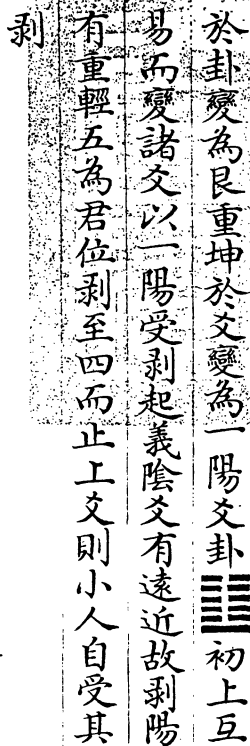 於卦變為艮重坤於爻變為一陽爻卦䷖初上互
易而變諸爻以一陽受剥起義陰爻有遠近故剥陽
有重輕五為君位剥至四而止上爻則小人自受其
剥